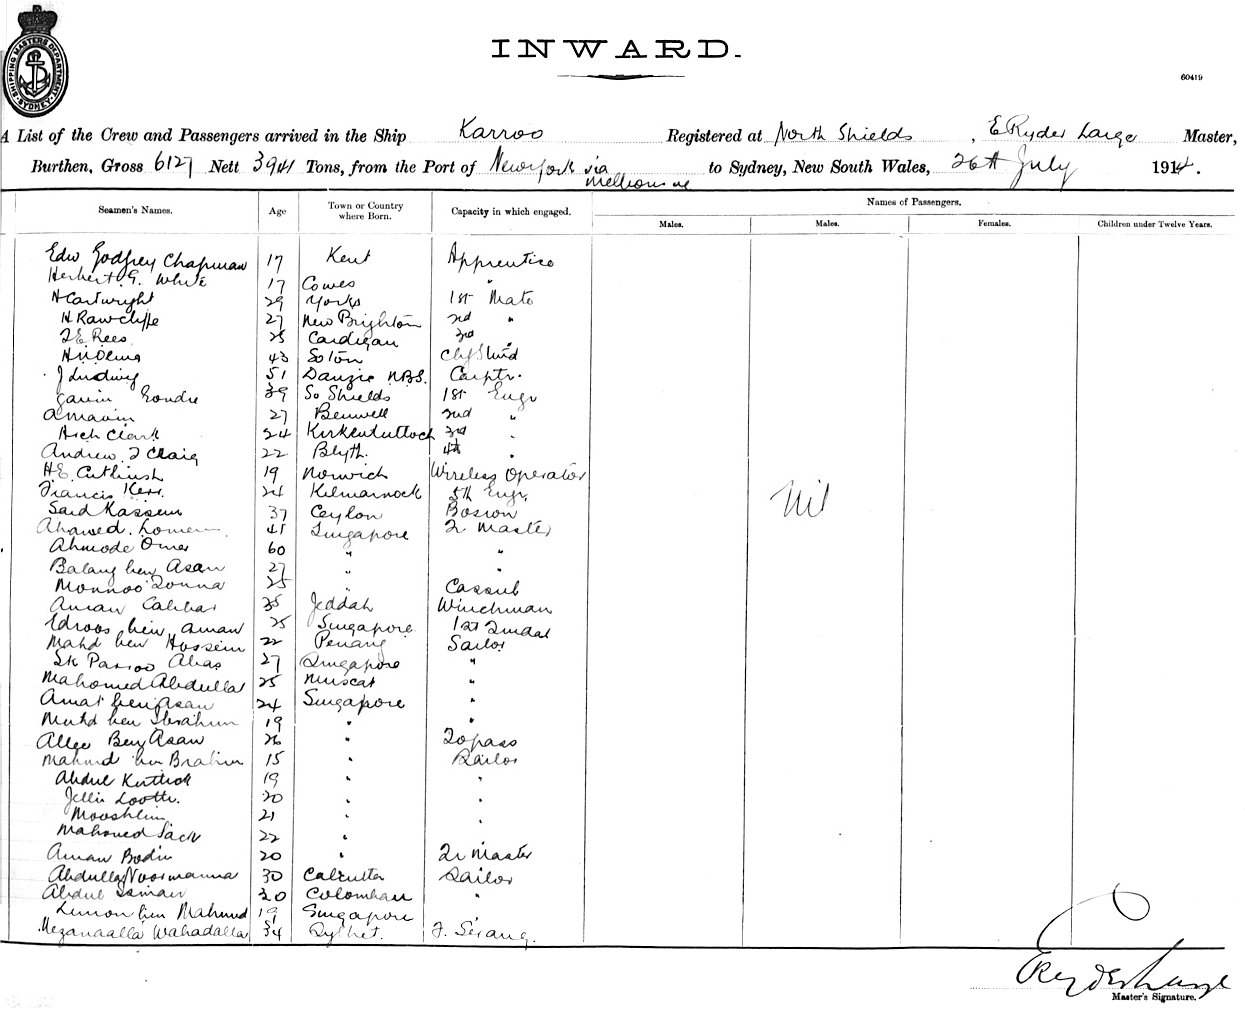 SHIPPING MASTERS DEPARTMENT SYDNEY
INWARD.
60419
A List of the Crew and Passengers arrived in the Ship Karroo Registered at North Shields, E Ryder Large Master,
Burthen, Gross 6127 Nett 3941 Tons, from the Port of Newyork via Melbourne to Sydney, New South Wales, 26th July 1914.
Seamen's Names. Age Town or Country where Born. Capacity in which engaged. Names of Passengers.
Males. Males. Females. Children under Twelve Years.
Edw Godfrey Chapman 17 Kent Apprentice
Herbert G. White 17 Cowes "
H Cartwright 29 Yorks 1st Mate
H Rawcliffe 27 New Brighton 2nd "
Rees 25 Cardigan 3rd "
43 Soton
J Ludwig 51 Danzic Carptr.
Gavin Goudie 39 So Shields 1st Engr
27 Benwell 2nd "
Arch Clark 24 3rd "
Andrew J Craig 22 Blyth. 4th "
H.E. 19 Norwich Wireless Operator
Francis Kerr. 24 Kilmarnock 5th Engr.
Said Kassem 37 Ceylon Bosson
Ahamed 41 Singapore Qr Master
Ahmode Omer 60 " "
Balang ben Asan 27 " "
25 " Cassub
Aman 35 Jeddah Winchman
Edroos bin Aman 25 Singapore 1st Tindal
Mahd ben Hossein 22 Penang Sailor
Sk Abas 27 Singapore "
Mahomed Abdulla 25 Muscat "
Amat ben Asan 24 Singapore "
Muhd ben Ibrahim 19 " "
Allee Ben Asan 26 " Topass
Mahmd bin Brahim 15 " Sailor
Abdul 19 " "
20 " "
Mooshlim 21 " "
Mahomed 22 " "
Aman Bodin 20 " Qr Master
Abdulla Noormanna 30 Calcutta Sailor
Abdul 30 "
bin Mahmud 19 Singapore
Wahadalla 34 Sylhet. Serang.
Nil
E Ryder Large
Master's Signature.